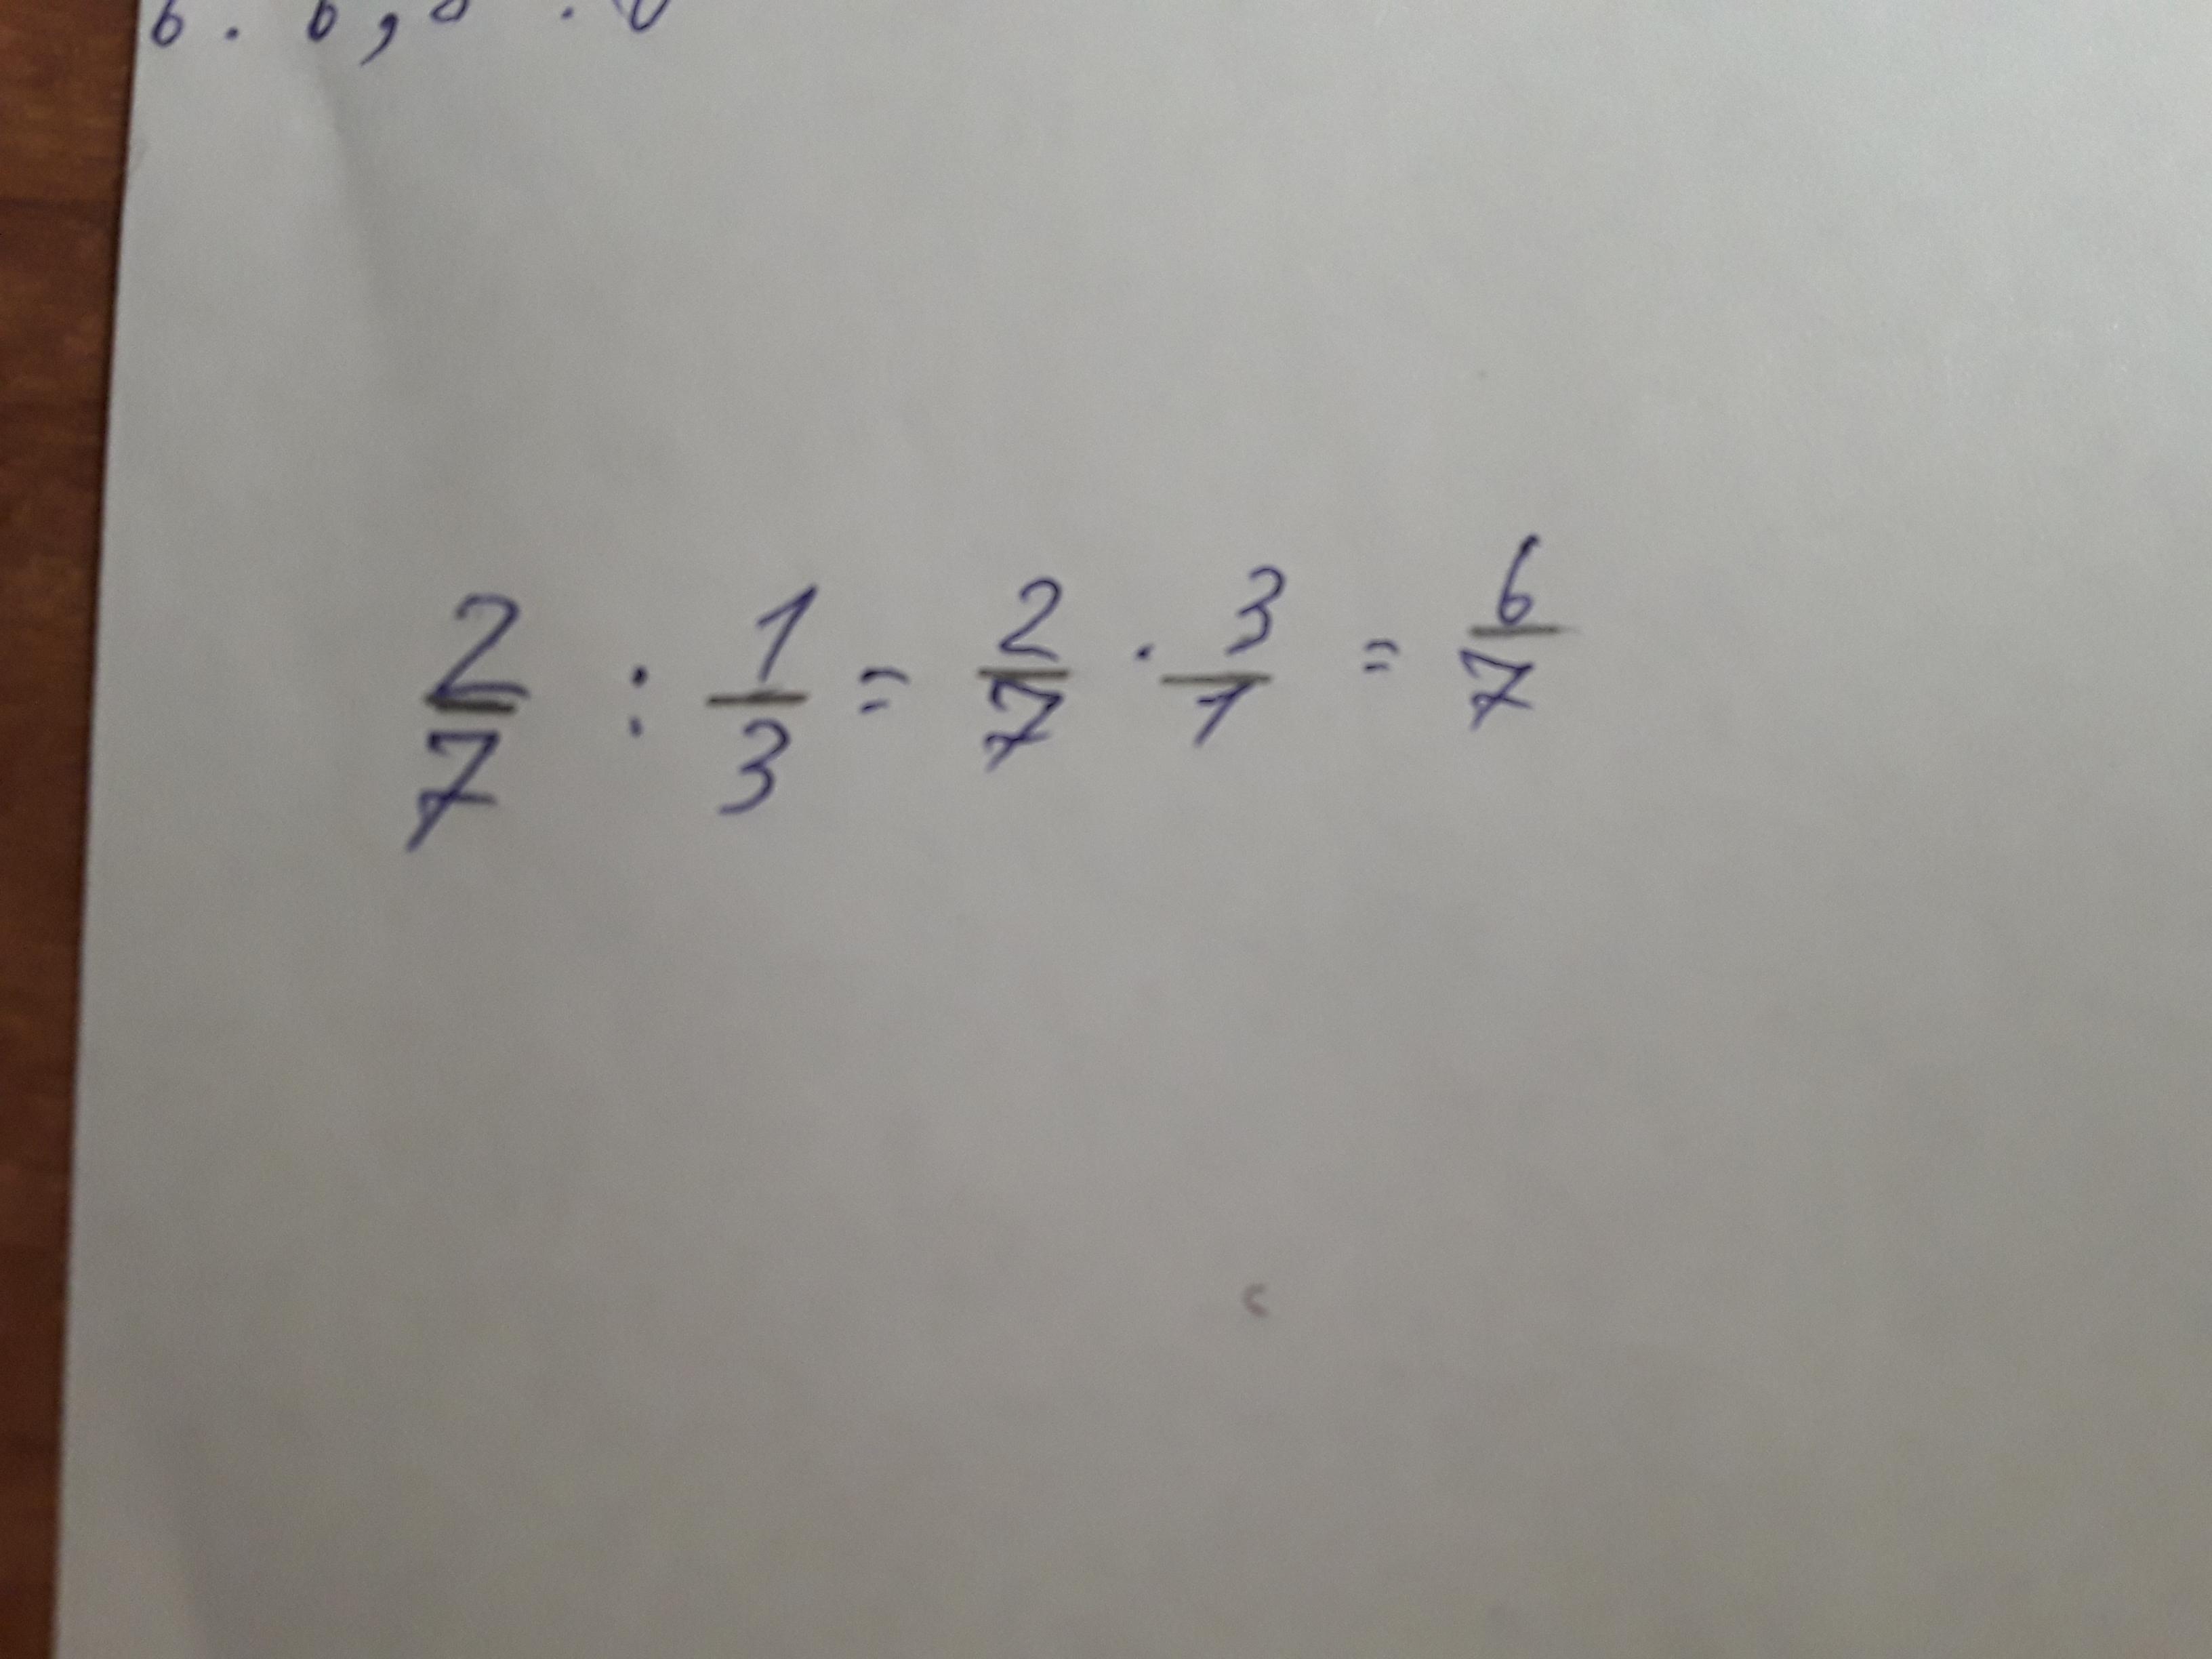 2/7 : 1/3 = 2/7 · 3/1 = 6/7